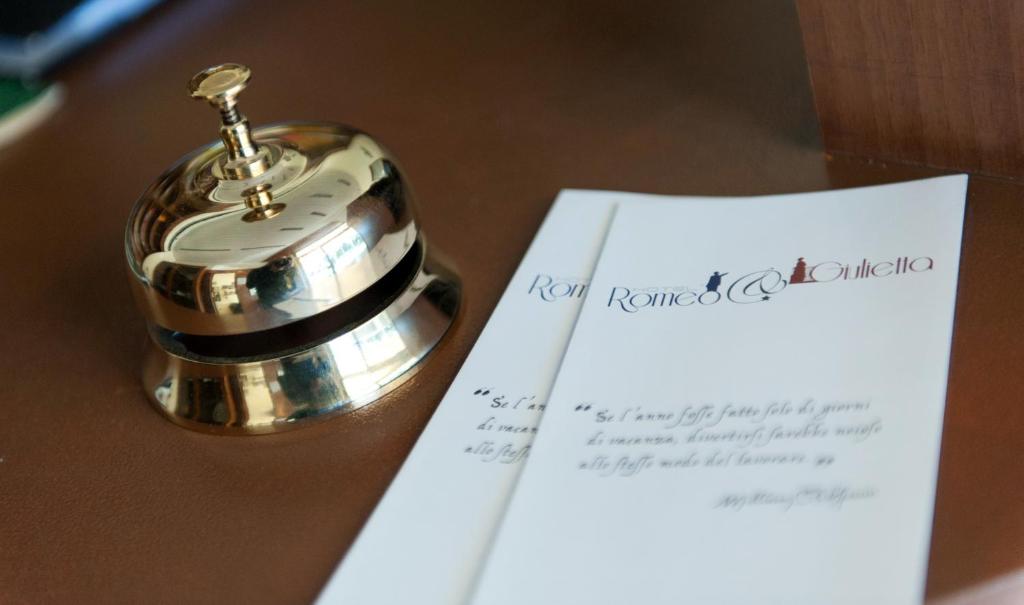 HOTEL
Romeo & Giulietta
“ Se l'anno fosse fatto solo di giorni
di vacanza, divertirsi sarebbe noioso
allo stesso modo del lavorare. ”
Rom
“ Se l'an
di vacan
allo stess